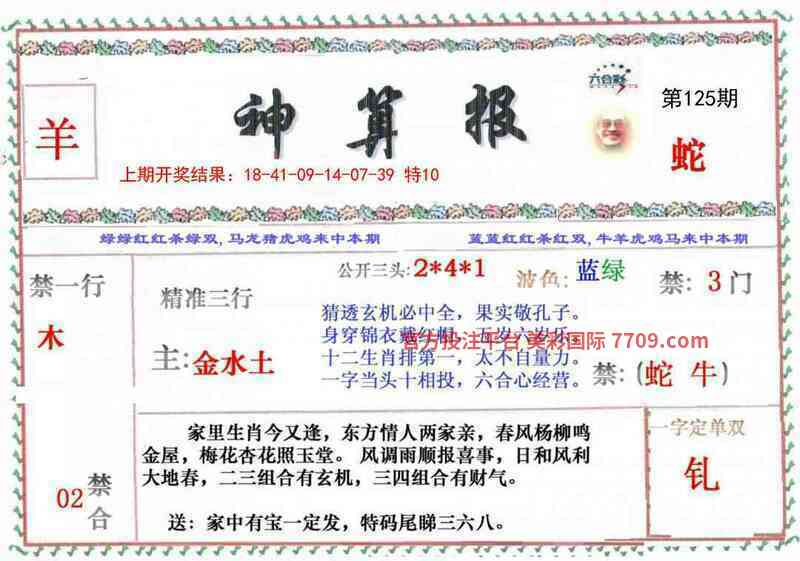 神算报
六合彩
第125期
羊
蛇
上期开奖结果：18-41-09-14-07-39 特10
绿绿红红杀绿双,马龙猪虎鸡来中本期
蓝蓝红红杀红双,牛羊虎鸡马来中本期
禁一行
木
精准三行
主:金水土
公开三头:2*4*1
波色:蓝绿
禁:3门
猜透玄机必中全，果实敬孔子。
身穿锦衣戴红帽，五岁六岁乐
官方投注平台 美彩国际 7709.com
十二生肖排第一，太不自量力。
一字当头十相投，六合心经营。
禁:(蛇 牛)
02
禁合
家里生肖今又逢，东方情人两家亲，春风杨柳鸣
金屋，梅花杏花照玉堂。 风调雨顺报喜事，日和风利
大地春，二三组合有玄机，三四组合有财气。
送：家中有宝一定发，特码尾睇三六八。
一字定单双
钆